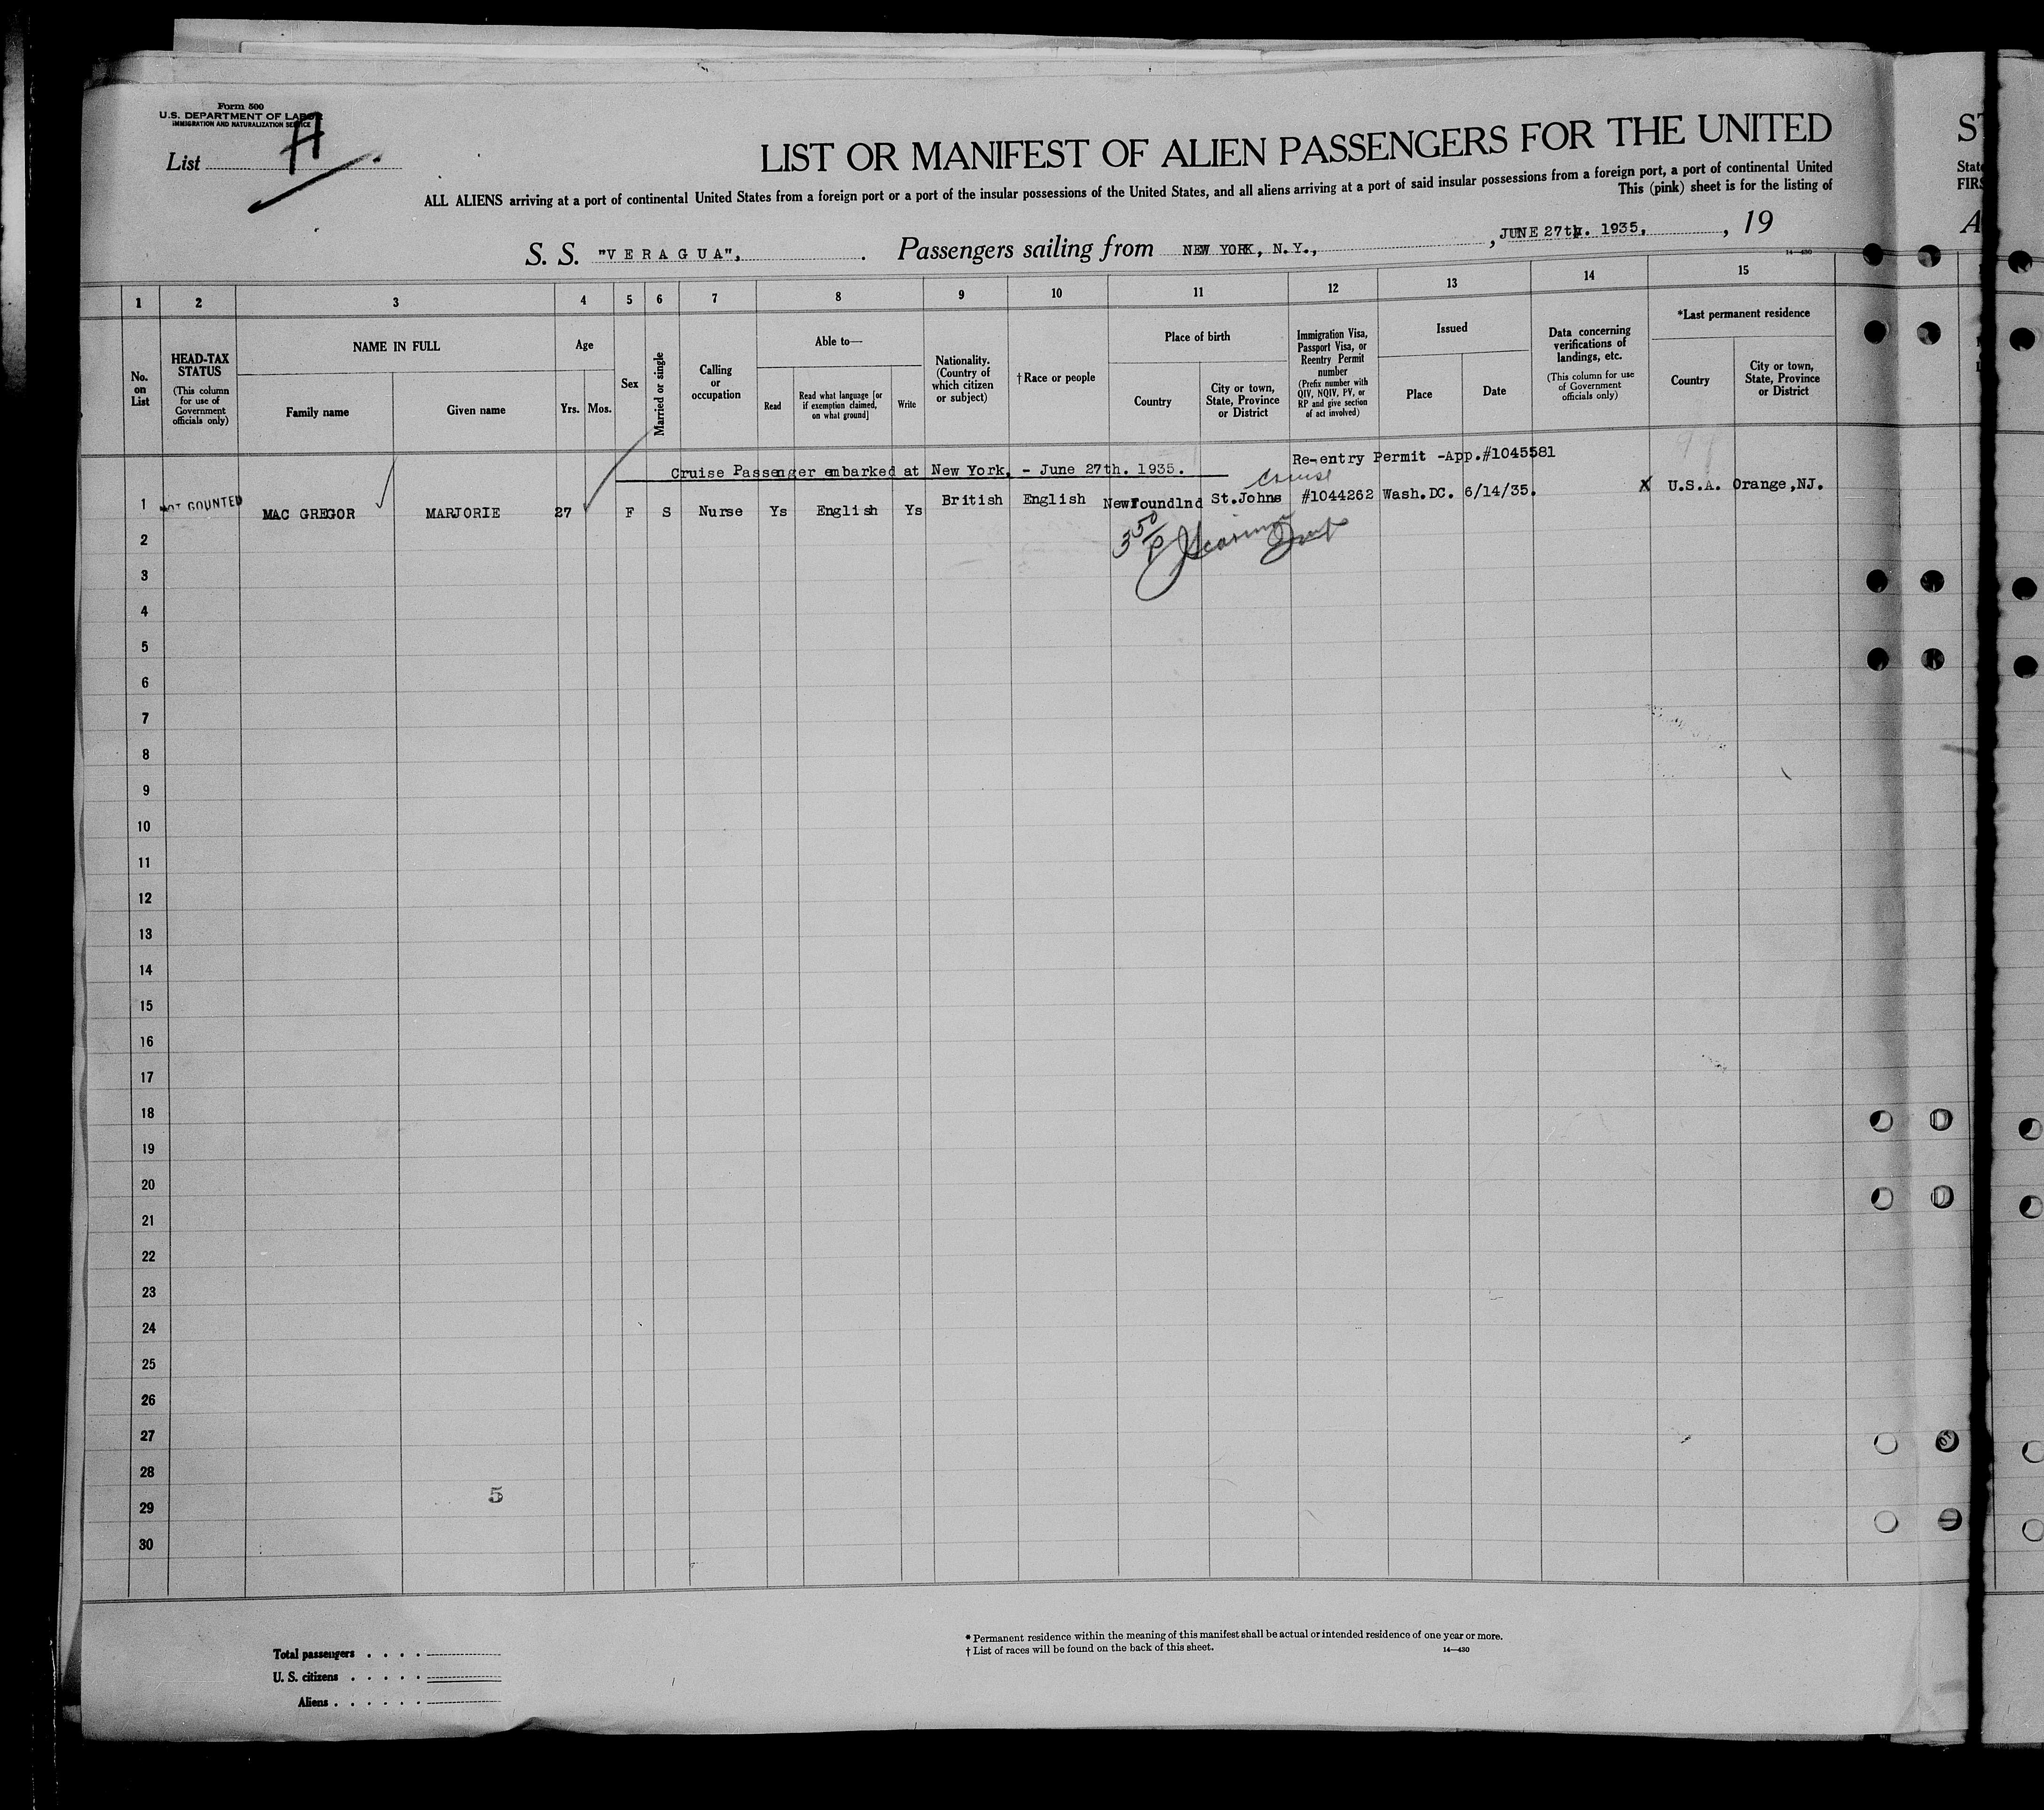 Form 500
U.S. DEPARTMENT OF LABOR
IMMIGRATION AND NATURALIZATION SERVICE
List H
LIST OR MANIFEST OF ALIEN PASSENGERS FOR THE UNITED
ALL ALIENS arriving at a port of continental United States from a foreign port or a port of the insular possessions of the United States, and all aliens arriving at a port of said insular possessions from a foreign port, a port of continental United
This (pink) sheet is for the listing of
S. S. "VERAGUA", . Passengers sailing from NEW YORK, N.Y., , JUNE 27th. 1935. , 19
14—430
ST
State
FIRS
A
1 2 3 4 5 6 7 8 9 10 11 12 13 14 15
No. on List
HEAD-TAX STATUS
(This column for use of Government officials only)
NAME IN FULL
Family name
Given name
Age
Yrs. Mos.
Sex
Married or single
Calling or occupation
Able to—
Read
Read what language [or if exemption claimed, on what ground]
Write
Nationality. (Country of which citizen or subject)
†Race or people
Place of birth
Country
City or town, State, Province or District
Immigration Visa, Passport Visa, or Reentry Permit number
(Prefix number with QIV, NQIV, PV, or RP and give section of act involved)
Issued
Place
Date
Data concerning verifications of landings, etc.
(This column for use of Government officials only)
*Last permanent residence
Country
City or town, State, Province or District
Cruise Passenger embarked at New York, - June 27th. 1935.
Re-entry Permit -App.#1045581
cruise
1 NOT COUNTED MAC GREGOR MARJORIE 27 F S Nurse Ys English Ys British English Newfoundlnd St.Johns #1044262 Wash.DC. 6/14/35. X U.S.A. Orange,NJ.
2
3
4
5
6
7
8
9
10
11
12
13
14
15
16
17
18
19
20
21
22
23
24
25
26
27
28
5
29
30
Total passengers . . . .
U. S. citizens . . . . .
Aliens . . . . . .
* Permanent residence within the meaning of this manifest shall be actual or intended residence of one year or more.
† List of races will be found on the back of this sheet.
14—430